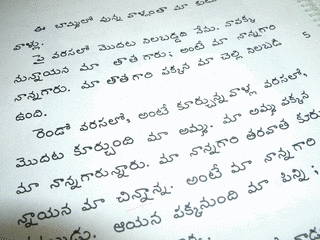 ఈ బొమ్మలో వున్న వాళ్ళంతా మా కుటుం
వాళ్లు.
పై వరసలో మొదట నిలబడ్డది నేను. నాపక్క
నున్నాయన మా తాతగారు; అంటే మా నాన్నగారి
నాన్నగారు. మా తాతగారి పక్కన మా చెల్లి నిలబడి 5
ఉంది.
రెండో వరసలో, అంటే కూర్చున్నవాళ్ల వరసలో,
మొదట కూర్చుంది మా అమ్మ. మా అమ్మ పక్కన
మా నాన్నగారున్నారు. మా నాన్నగారి తరవాత కూరు
న్నాయన మా చిన్నాన్న. అంటే మా నాన్నగారి
ఆయన పక్కనుంది మా పిన్ని;